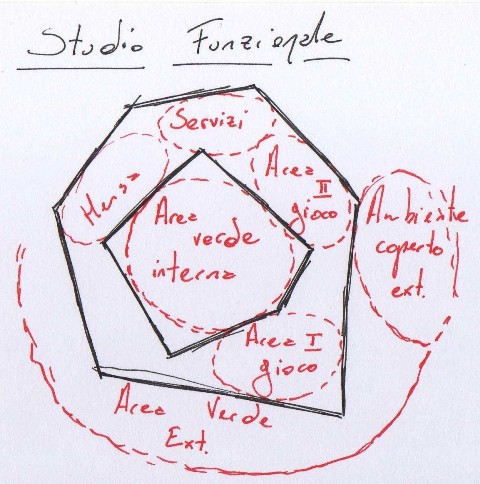 Studio Funzionale
Servizi
Mensa
Area II
gioco
Area
verde
interna
Ambiente
coperto
ext.
Area I
gioco
Area Verde
Ext.